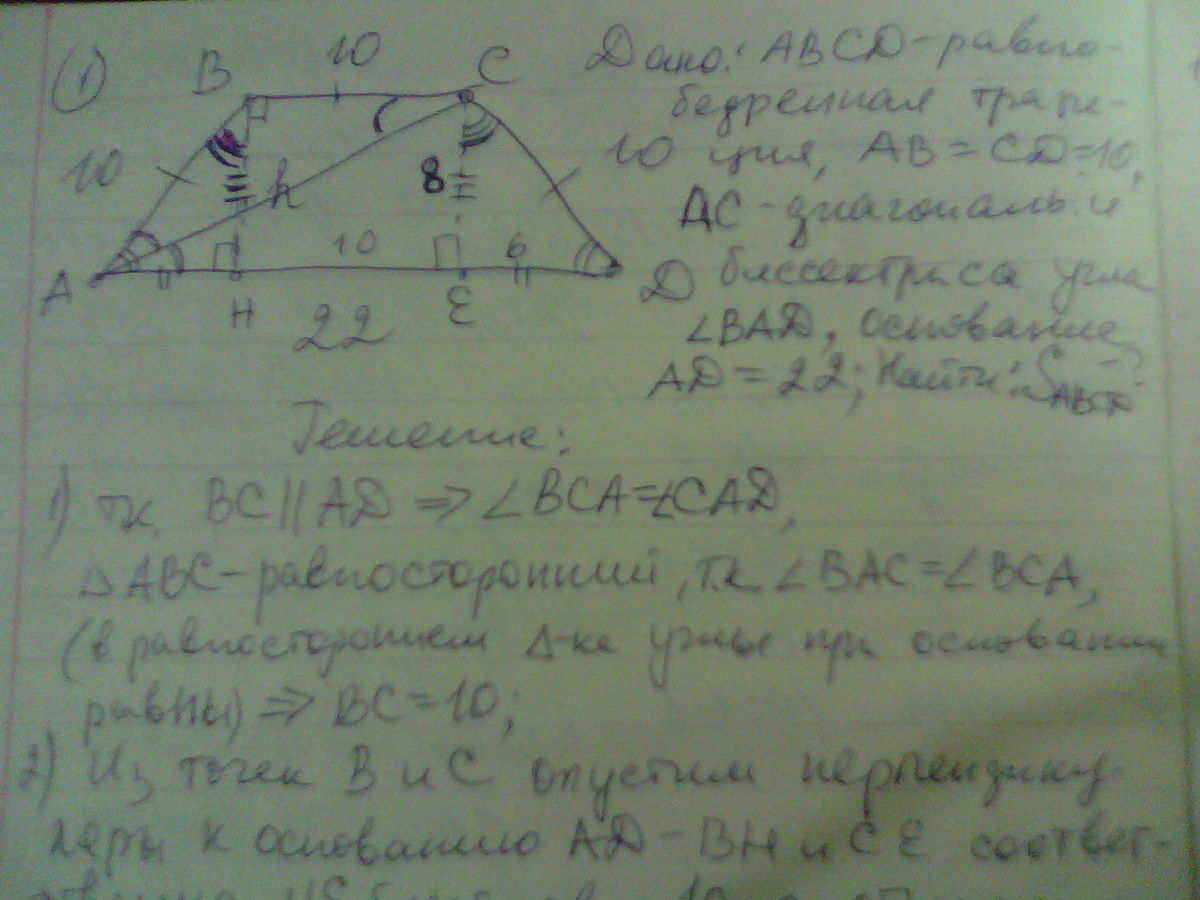 (1)
B 10 C
10 h 8 10
A H 10 E 6 D
22
Дано: ABCD - равно-
бедренная трапе-
ция, AB = CD = 10,
AC - диагональ и
биссектриса угла
∠BAD, основание
AD = 22; Найти: SABCD
Решение:
1) тк. BC || AD ⇒ ∠BCA = ∠CAD,
△ABC - равносторонний, т.к ∠BAC = ∠BCA,
(в равностороннем Δ-ке углы при основании
равны) ⇒ BC = 10;
2) Из точек B и C опустим перпендику-
ляры к основанию AD - BH и CE соответ-